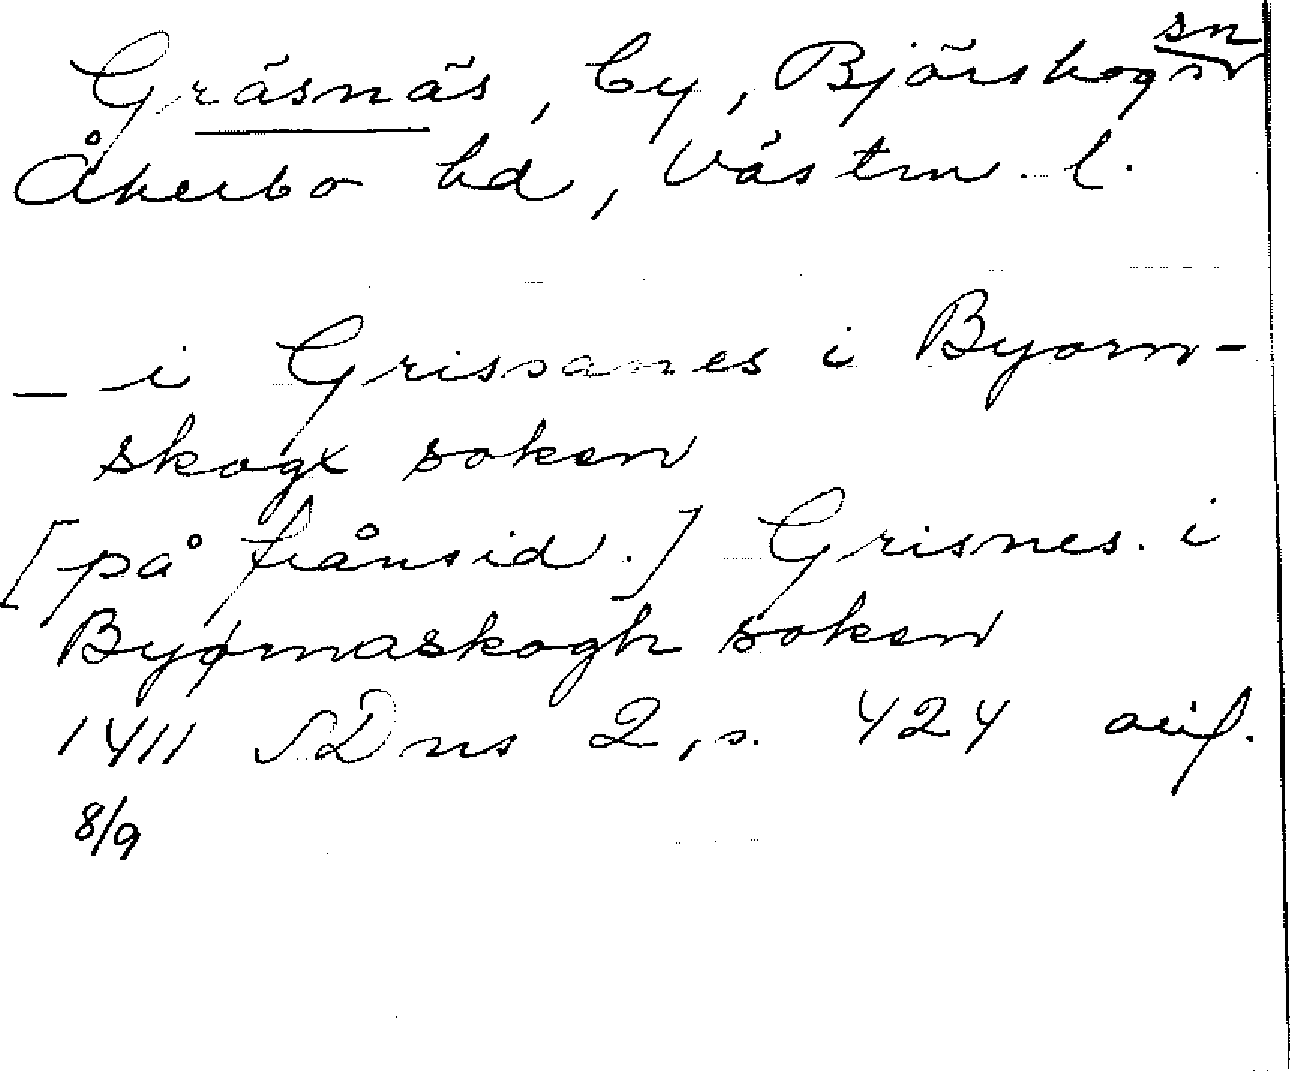 Gräsnäs, by, Björskogs sn
Åkerbo hd, Västm. l.
– i Grissanes i Byorn-
skogx soken
[på frånsid.] Grisnes. i
Byørnaskogh soken
1411 SDns 2, s. 424 avif.
8/9